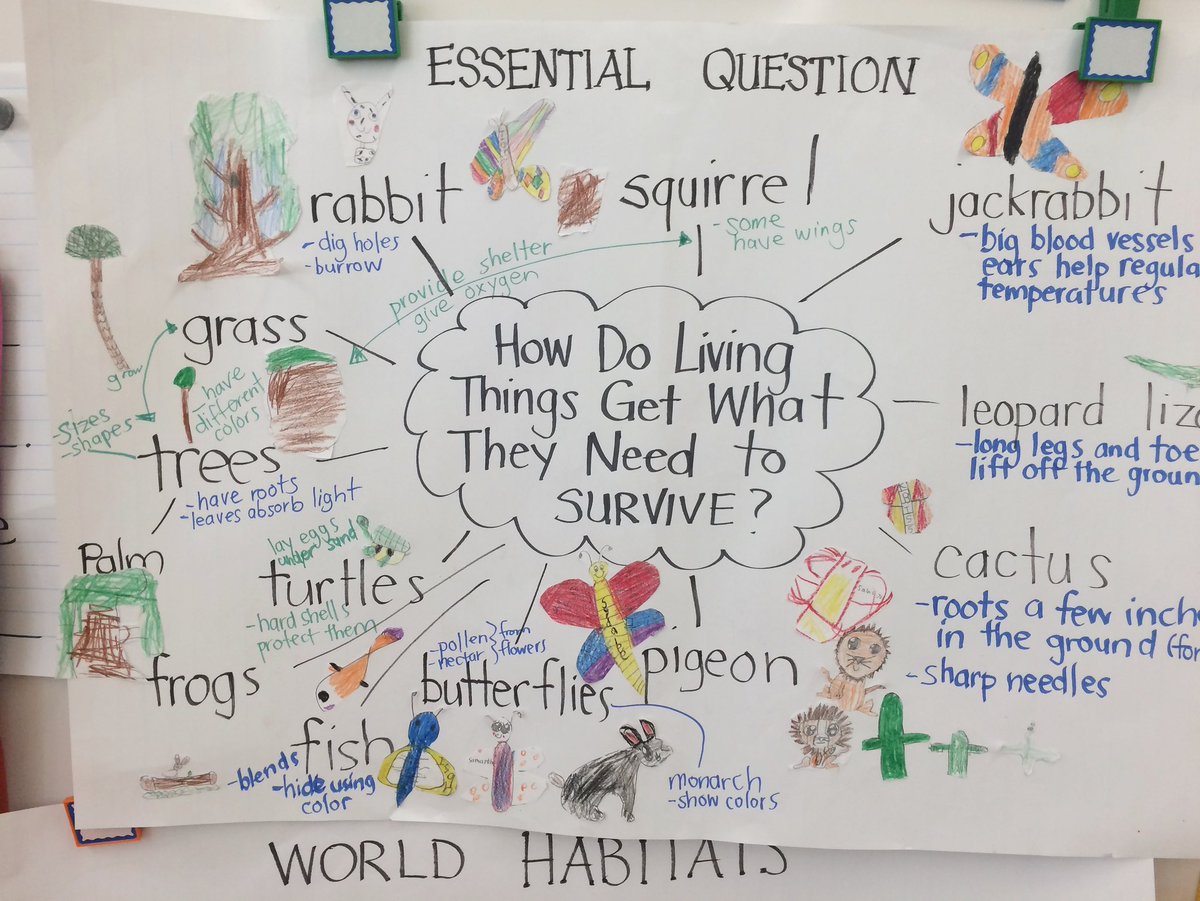 ESSENTIAL QUESTION
rabbit
- dig holes
- burrow
squirrel
- some
have wings
jackrabbit
- big blood vessels
ears help regula
temperatures
provide shelter
give oxygen
grass
grow
- sizes
- shapes
- have
different
colors
trees
- have roots
- leaves absorb light
How Do Living
Things Get What
They Need to
SURVIVE?
leopard liza
- long legs and toe
lift off the groun
Palm
lay eggs
under sand
turtles
- hard shells
protect them
cactus
- roots a few inch
in the ground (for
- sharp needles
frogs
- pollen } from
- nectar } flowers
butterflies
pigeon
fish
- blends
- hide using
color
monarch
- show colors
WORLD HABITATS